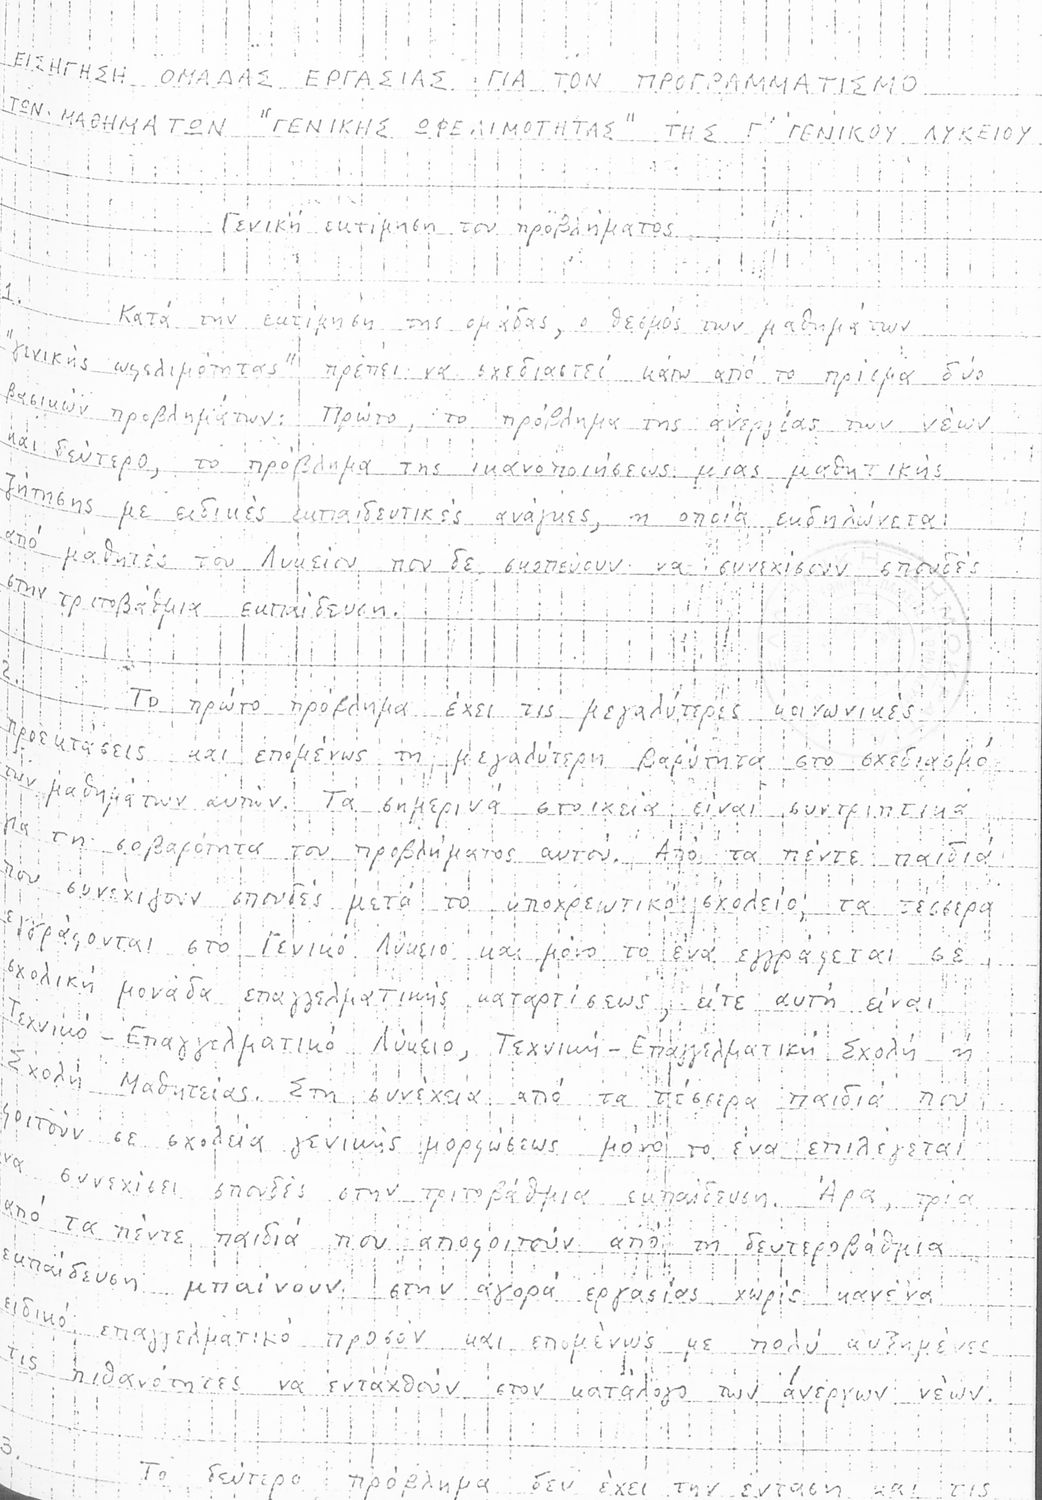 ΕΙΣΗΓΗΣΗ ΟΜΑΔΑΣ ΕΡΓΑΣΙΑΣ ΓΙΑ ΤΟΝ ΠΡΟΓΡΑΜΜΑΤΙΣΜΟ
ΤΩΝ ΜΑΘΗΜΑΤΩΝ "ΓΕΝΙΚΗΣ ΩΦΕΛΙΜΟΤΗΤΑΣ" ΤΗΣ Γ' ΓΕΝΙΚΟΥ ΛΥΚΕΙΟΥ
Γενική εκτίμηση του προβλήματος
1.
Κατά την εκτίμηση της ομάδας, ο θεσμός των μαθημάτων
"γενικής ωφελιμότητας" πρέπει να σχεδιαστεί κάτω από το πρίσμα δύο
βασικών προβλημάτων: Πρώτο, το πρόβλημα της ανεργίας των νέων
και δεύτερο, το πρόβλημα της ικανοποιήσεως μιας μαθητικής
ζήτησης με ειδικές εκπαιδευτικές ανάγκες, η οποία εκδηλώνεται
από μαθητές του Λυκείου που δε σκοπεύουν να συνεχίσουν σπουδές
στην τριτοβάθμια εκπαίδευση.
2.
Το πρώτο πρόβλημα έχει τις μεγαλύτερες κοινωνικές
προεκτάσεις και επομένως τη μεγαλύτερη βαρύτητα στο σχεδιασμό
των μαθημάτων αυτών. Τα σημερινά στοιχεία είναι συντριπτικά
για τη σοβαρότητα του προβλήματος αυτού. Από τα πέντε παιδιά
που συνεχίζουν σπουδές μετά το υποχρεωτικό σχολείο, τα τέσσερα
εγγράφονται στο Γενικό Λύκειο και μόνο το ένα εγγράφεται σε
σχολική μονάδα επαγγελματικής καταρτίσεως, είτε αυτή είναι
Τεχνικό-Επαγγελματικό Λύκειο, Τεχνική-Επαγγελματική Σχολή ή
Σχολή Μαθητείας. Στη συνέχεια από τα τέσσερα παιδιά που
φοιτούν σε σχολεία γενικής μορφώσεως μόνο το ένα επιλέγεται
να συνεχίσει σπουδές στην τριτοβάθμια εκπαίδευση. Άρα, τρία
από τα πέντε παιδιά που αποφοιτούν από τη δευτεροβάθμια
εκπαίδευση μπαίνουν στην αγορά εργασίας χωρίς κανένα
ειδικό επαγγελματικό προσόν και επομένως με πολύ αυξημένες
τις πιθανότητες να ενταχθούν στον κατάλογο των άνεργων νέων.
3.
Το δεύτερο πρόβλημα δεν έχει την ένταση και τις